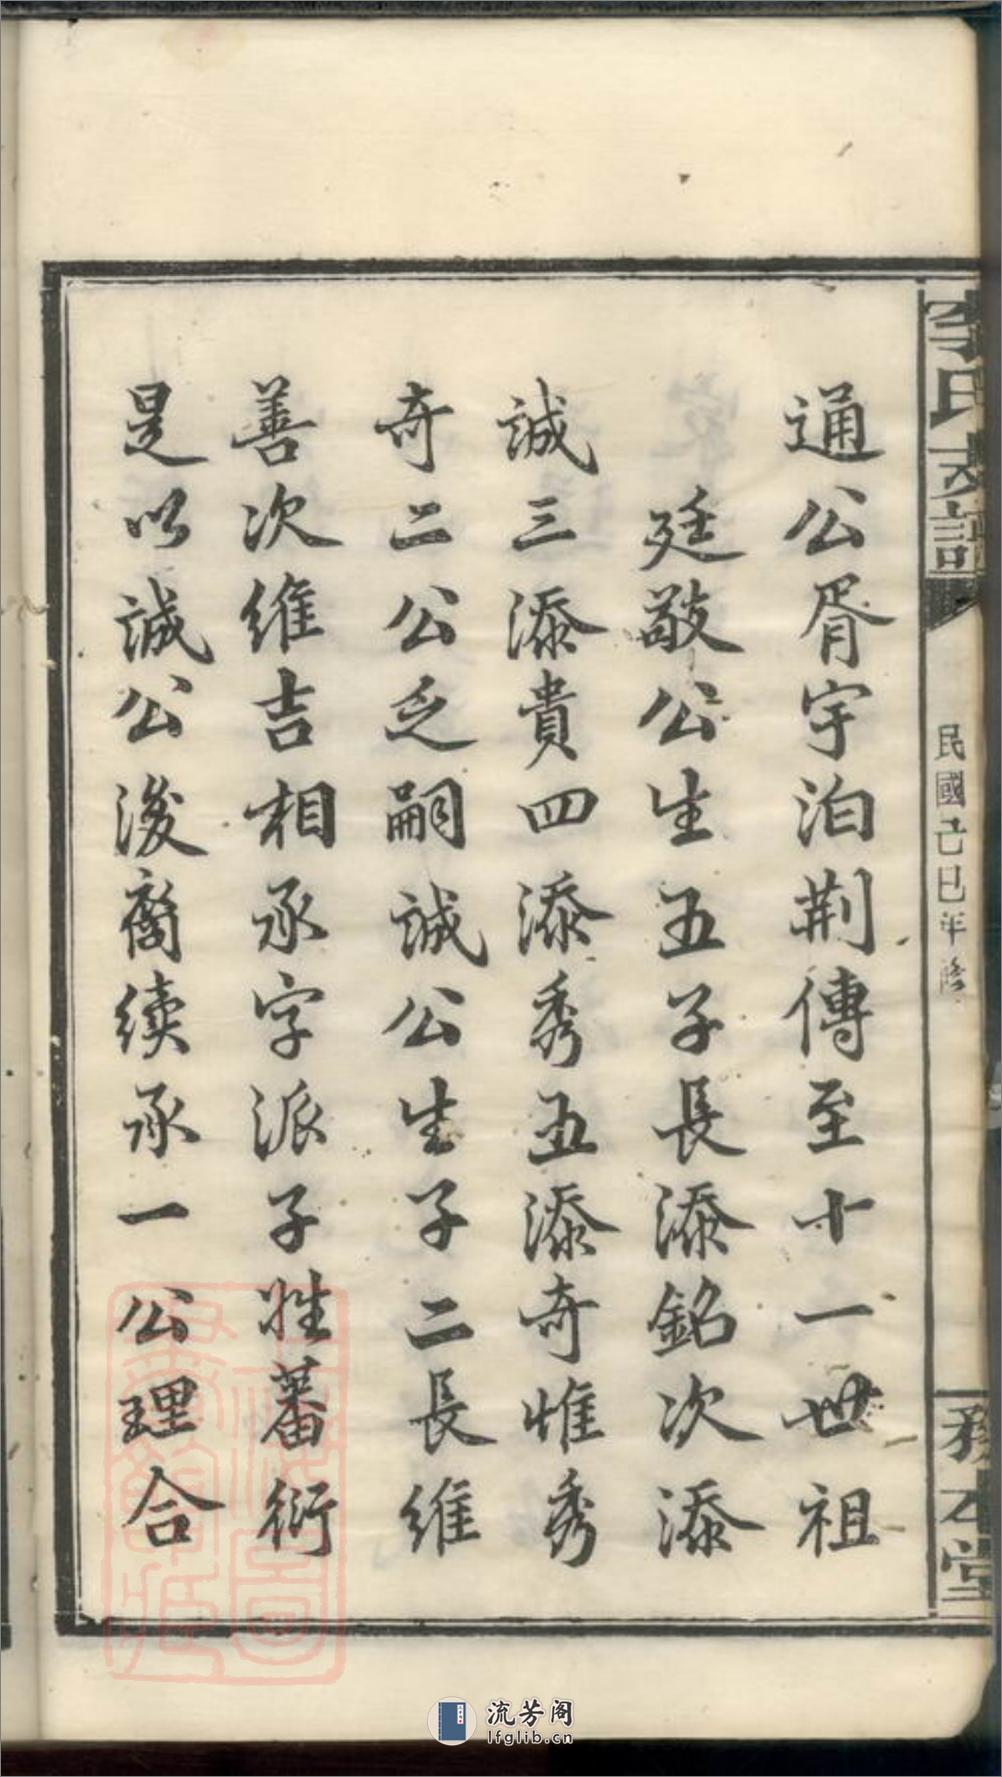 李氏支譜
民國己巳年修
務本堂
通公胥宇泊荆傳至十一世祖
廷敬公生五子長添銘次添
誠三添貴四添秀五添奇惟秀
奇二公乏嗣誠公生子二長維
善次維吉相承字派子姓蕃衍
是以誠公後裔续承一公理合
流芳阁
lfglib.cn